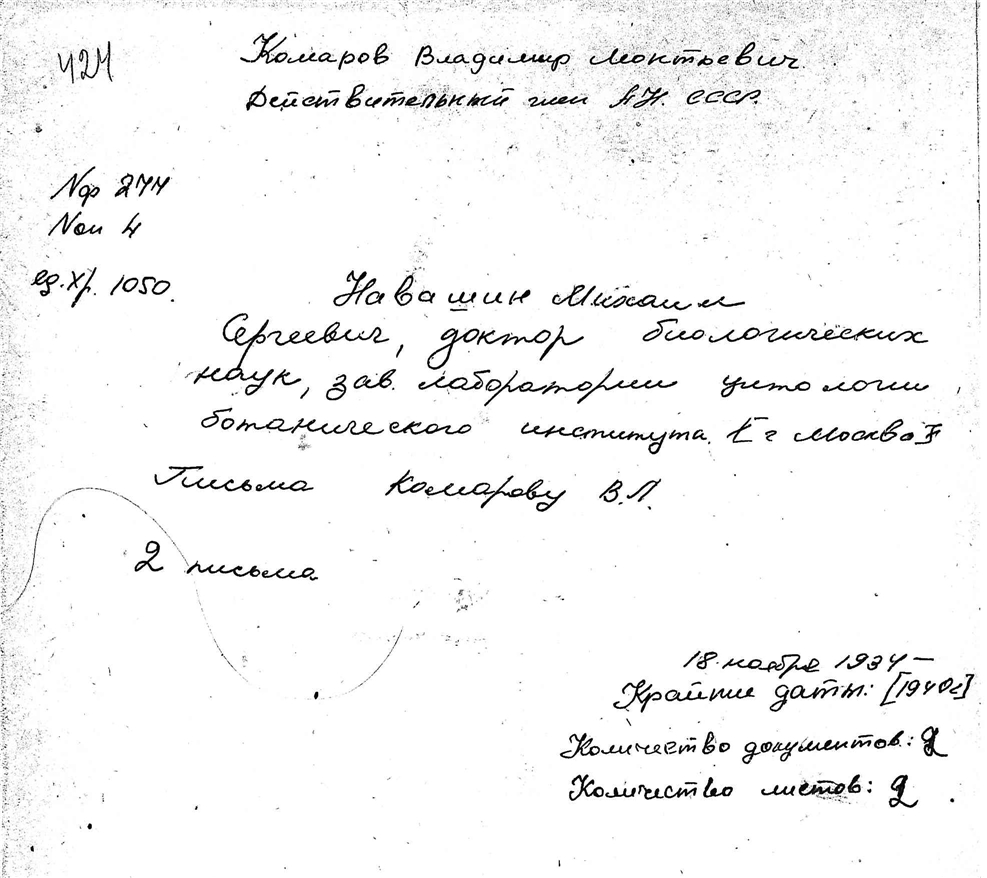 424
Комаров Владимир Леонтьевич
Действительный член АН. СССР.
№ф 277
№оп 4
ед.хр. 1050.
Навашин Михаил
Сергеевич, доктор биологических
наук, зав. лаборатории цитологии
ботанического института. [г Москва]
Письма Комарову В.Л.
2 письма
18 ноября 1934 —
Крайние даты: [1940е]
Количество документов: 2
Количество листов: 2.